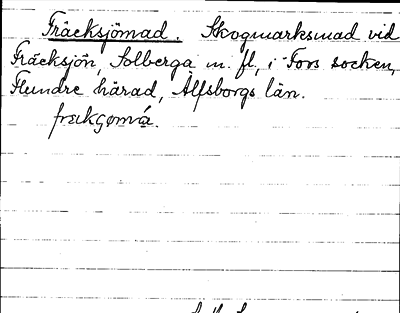 Fräcksjömad. Skogmarksmad vid
Fräcksjön, Solberga m. fl., i Fors socken,
Flundre härad, Älfsborgs län.
frækgomá.